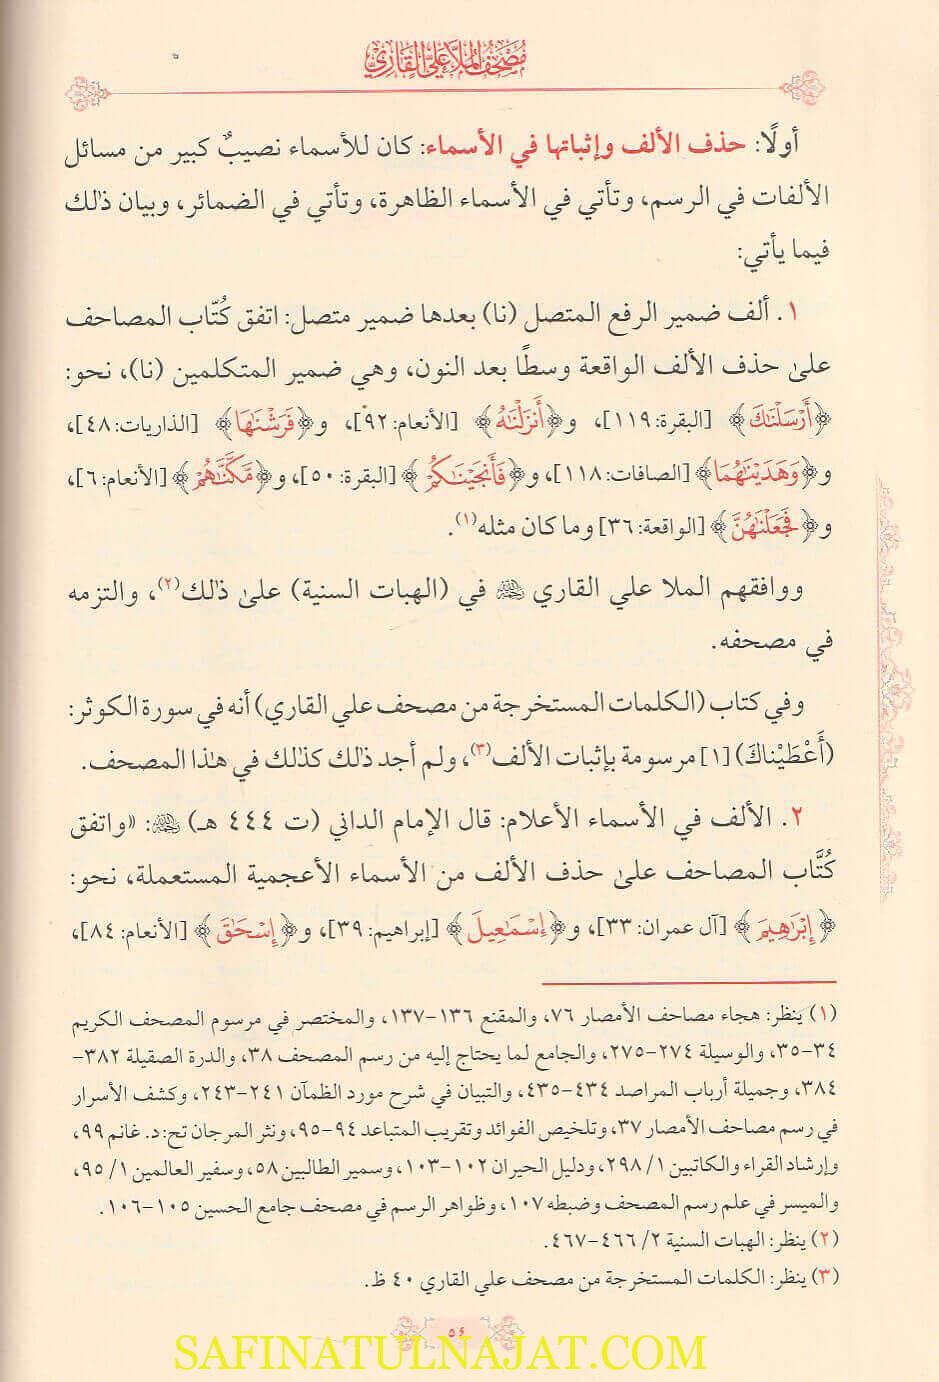 مُصْحَفُ المُلَّا عَلِي القَارِي
أولًا: حذف الألف وإثباتها في الأسماء: كان للأسماء نصيبٌ كبير من مسائل
الألفات في الرسم، وتأتي في الأسماء الظاهرة، وتأتي في الضمائر، وبيان ذٰلك
فيما يأتي:
١. ألف ضمير الرفع المتصل (نا) بعدها ضمير متصل: اتفق كُتّاب المصاحف
علىٰ حذف الألف الواقعة وسطًا بعد النون، وهي ضمير المتكلمين (نا)، نحو:
﴿أَرْسَلْنَٰكَ﴾ [البقرة: ١١٩]، و﴿أَنزَلْنَٰهُ﴾ [الأنعام: ٩٢]، و﴿فَرَشْنَٰهَا﴾ [الذاريات: ٤٨]،
و﴿وَهَدَيْنَٰهُمَا﴾ [الصافات: ١١٨]، و﴿فَأَنجَيْنَٰكُمْ﴾ [البقرة: ٥٠]، و﴿مَّكَّنَّٰهُمْ﴾ [الأنعام: ٦]،
و﴿فَجَعَلْنَٰهُنَّ﴾ [الواقعة: ٣٦] وما كان مثله(١).
ووافقهم الملا علي القاري ﵀ في (الهبات السنية) علىٰ ذٰلك(٢)، والتزمه
في مصحفه.
وفي كتاب (الكلمات المستخرجة من مصحف علي القاري) أنه في سورة الكوثر:
(أَعْطَيْناكَ) [١] مرسومة بإثبات الألف(٣)، ولم أجد ذٰلك كذٰلك في هٰذا المصحف.
٢. الألف في الأسماء الأعلام: قال الإمام الداني (ت ٤٤٤ هـ) ﵀: «واتفق
كُتَّاب المصاحف علىٰ حذف الألف من الأسماء الأعجمية المستعملة، نحو:
﴿إِبْرَٰهِيمَ﴾ [آل عمران: ٣٣]، و﴿إِسْمَٰعِيلَ﴾ [إبراهيم: ٣٩]، و﴿إِسْحَٰقَ﴾ [الأنعام: ٨٤]،
(١) ينظر: هجاء مصاحف الأمصار ٧٦، والمقنع ١٣٦-١٣٧، والمختصر في مرسوم المصحف الكريم
٣٤-٣٥، والوسيلة ٢٧٤-٢٧٥، والجامع لما يحتاج إليه من رسم المصحف ٣٨، والدرة الصقيلة ٣٨٢-
٣٨٤، وجميلة أرباب المراصد ٤٣٤-٤٣٥، والتبيان في شرح مورد الظمآن ٢٤١-٢٤٣، وكشف الأسرار
في رسم مصاحف الأمصار ٣٧، وتلخيص الفوائد وتقريب المتباعد ٩٤-٩٥، ونثر المرجان تح: د. غانم ٩٩،
وإرشاد القراء والكاتبين ١/ ٢٩٨، ودليل الحيران ١٠٢-١٠٣، وسمير الطالبين ٥٨، وسفير العالمين ١/ ٩٥،
والميسر في علم رسم المصحف وضبطه ١٠٧، وظواهر الرسم في مصحف جامع الحسين ١٠٥-١٠٦.
(٢) ينظر: الهبات السنية ٢/ ٤٦٦-٤٦٧.
(٣) ينظر: الكلمات المستخرجة من مصحف علي القاري ٤٠ ظ.
٥٤
SAFINATULNAJAT.COM